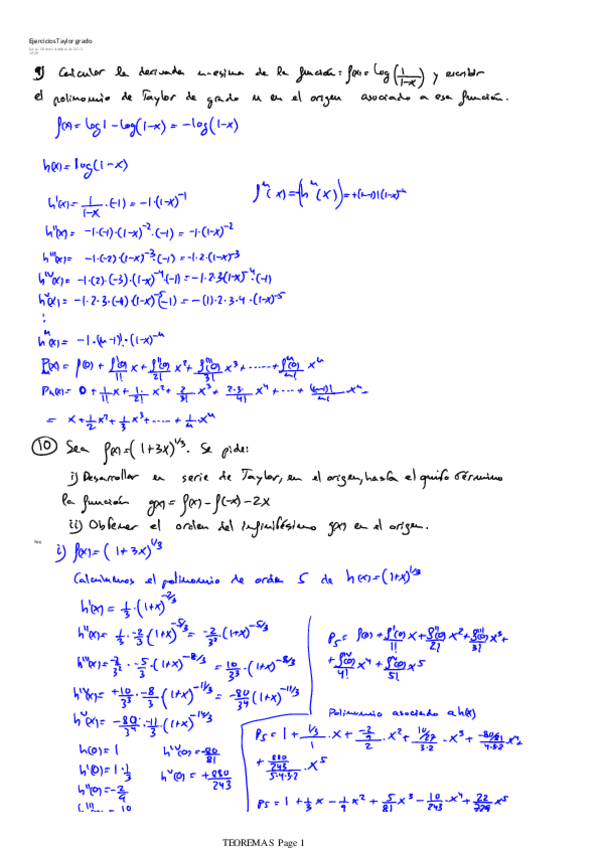 Ejercicios Taylor grado
9) Calcular la derivada n-esima de la función: f(x) = log(1/(1-x)) y escribir
el polinomio de Taylor de grado n en el origen asociado a esa función.
f(x) = log1 - log(1-x) = -log(1-x)
h(x) = log(1-x)
h'(x) = 1/(1-x) · (-1) = -1·(1-x)^-1
f^n(x) = -(h^n(x)) = +(n-1)!(1-x)^-n
h''(x) = -1·(-1)·(1-x)^-2·(-1) = -1·(1-x)^-2
h'''(x) = -1·(-2)·(1-x)^-3·(-1) = -1·2·(1-x)^-3
h^IV(x) = -1·(2)·(-3)·(1-x)^-4·(-1) = -1·2·3(1-x)^-4·(-1)
h^V(x) = -1·2·3·(-4)·(1-x)^-5(-1) = -(1)·2·3·4·(1-x)^-5
⋮
h^n(x) = -1·(n-1)!·(1-x)^-n
P_n(x) = f(0) + f'(0)/1! x + f''(0)/2! x^2 + f'''(0)/3! x^3 + ...... + f^n(0)/n! x^n
P_n(x) = 0 + 1/1! x + 1/2! x^2 + 2/3! x^3 + 2·3/4! x^4 + ... + (n-1)!/n! x^n =
= x + 1/2 x^2 + 1/3 x^3 + ..... + 1/n x^n
10) Sea f(x) = (1+3x)^1/3. Se pide:
i) Desarrollar en serie de Taylor, en el origen, hasta el quinto término
la función g(x) = f(x) - f(-x) - 2x
ii) Obtener el orden del infinitésimo g(x) en el origen.
i) f(x) = (1+3x)^1/3
Calculamos el polinomio de orden 5 de h(x) = (1+x)^1/3
h'(x) = 1/3 · (1+x)^-2/3
h''(x) = 1/3 · -2/3 (1+x)^-5/3 = -2/3^2 · (1+x)^-5/3
h'''(x) = -2/3^2 · -5/3 · (1+x)^-8/3 = 10/3^3 · (1+x)^-8/3
h^IV(x) = +10/3^3 · -8/3 (1+x)^-11/3 = -80/3^4 (1+x)^-11/3
h^V(x) = -80/3^4 · -11/3 · (1+x)^-14/3
h(0) = 1
h^IV(0) = -80/81
h'(0) = 1·1/3
h^V(0) = +880/243
h''(0) = -2/9
P_5 = f(0) + f'(0)/1! x + f''(0)/2! x^2 + f'''(0)/3! x^3 +
+ f^IV(0)/4! x^4 + f^V(0)/5! x^5
Polinomio asociado a h(x)
P_5 = 1 + 1/3/1 · x + -2/9/2 · x^2 + 10/27/3·2 · x^3 + -80/81/4·3·2 x^4
+ 880/243/5·4·3·2 · x^5
P_5 = 1 + 1/3 x - 1/9 x^2 + 5/81 x^3 - 10/243 x^4 + 22/729 x^5
TEOREMAS Page 1